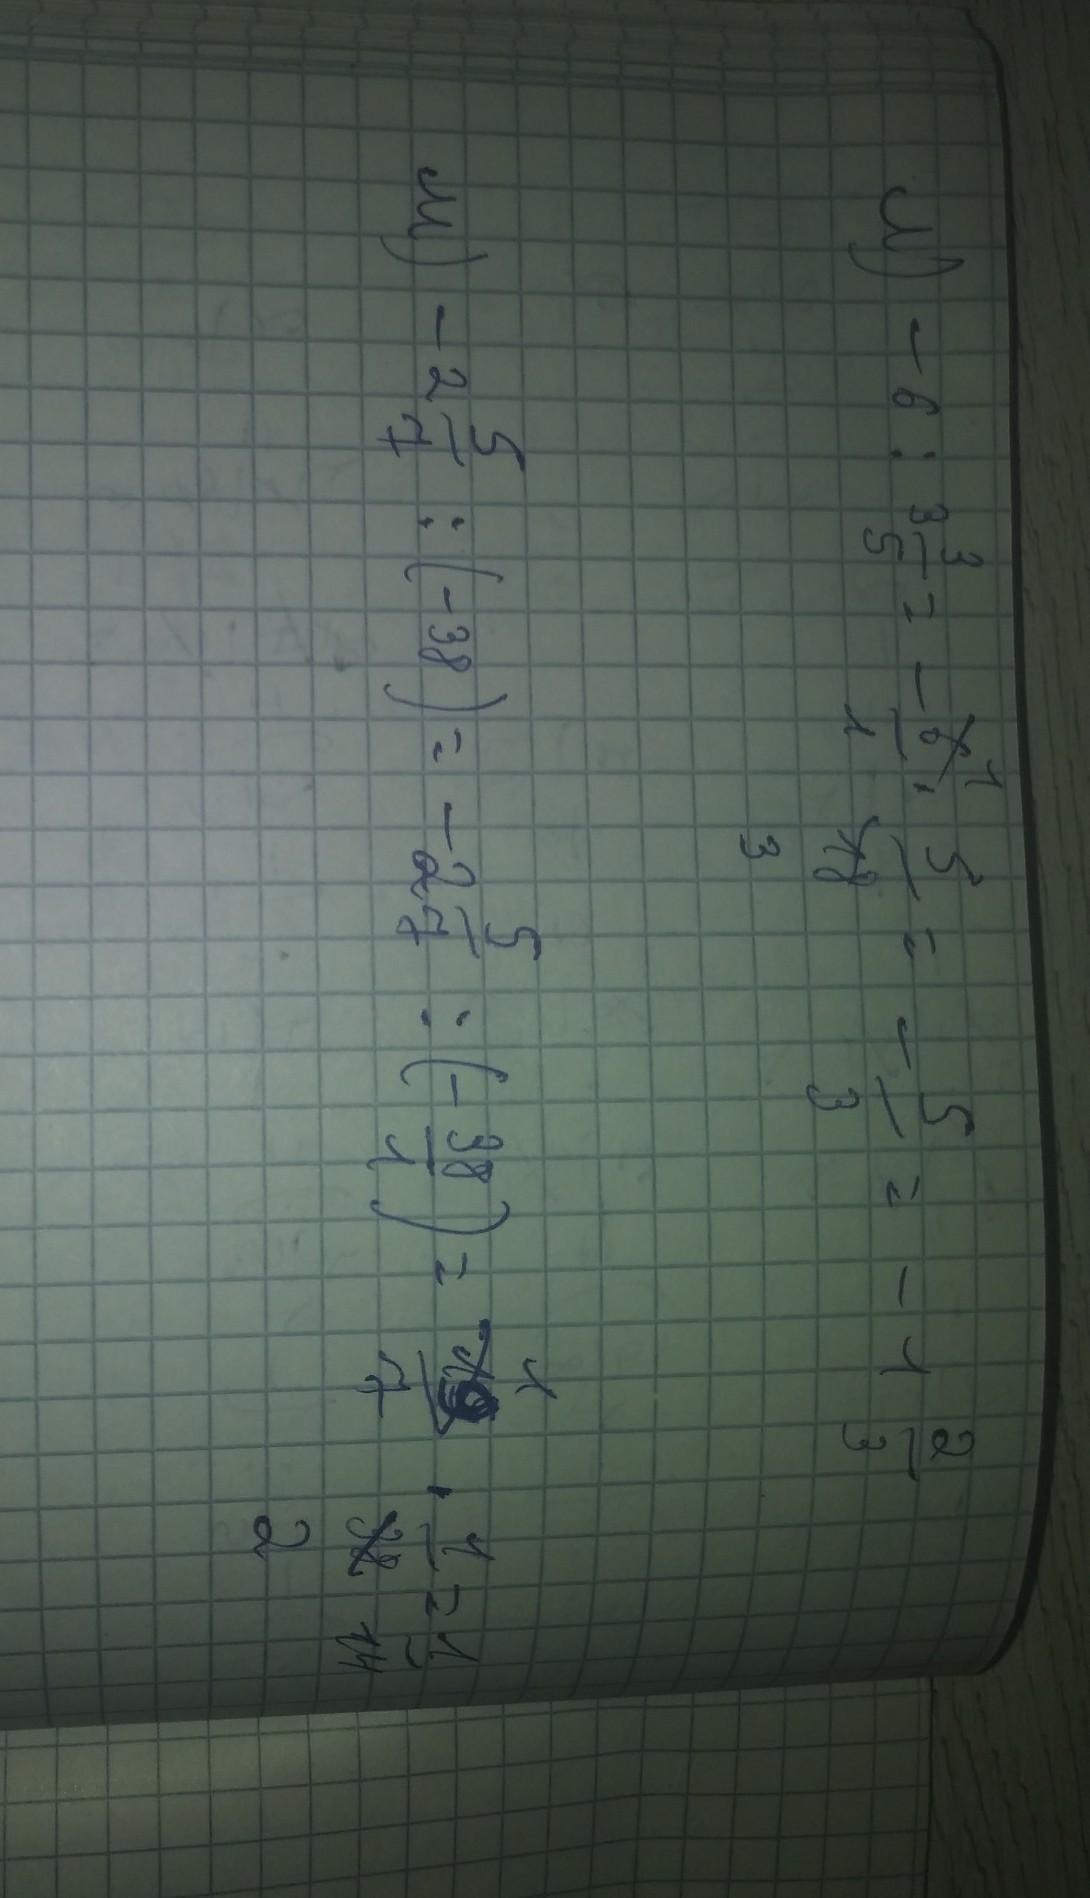 л) -6 : 3 3/5 = - 6/1 · 5/18 = - 5/3 = - 1 2/3
1
3
м) -2 5/7 : (-38) = -2 5/7 : (- 38/1) = 19/7 · 1/38 = 1/14
1
2